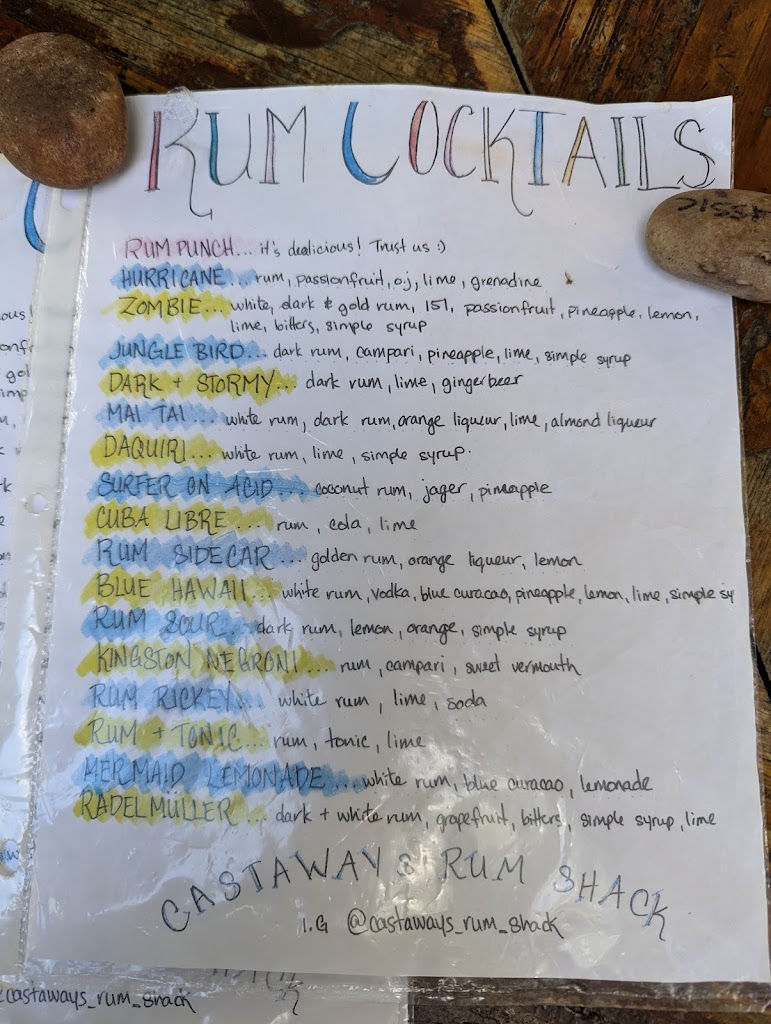 RUM COCKTAILS
RUM PUNCH... it's dealicious! Trust us :)
HURRICANE... rum, passionfruit, o.j, lime, grenadine
ZOMBIE... white, dark & gold rum, 151, passionfruit, pineapple, lemon,
lime, bitters, simple syrup
JUNGLE BIRD... dark rum, campari, pineapple, lime, simple syrup
DARK + STORMY... dark rum, lime, gingerbeer
MAI TAI... white rum, dark rum, orange liqueur, lime, almond liqueur
DAQUIRI... white rum, lime, simple syrup.
SURFER ON ACID... coconut rum, jager, pineapple
CUBA LIBRE.... rum, cola, lime
RUM SIDECAR... golden rum, orange liqueur, lemon
BLUE HAWAII... white rum, vodka, blue curacao, pineapple, lemon, lime, simple sy
RUM SOUR... dark rum, lemon, orange, simple syrup
KINGSTON NEGRONI... rum, campari, sweet vermouth
RUM RICKEY... white rum, lime, soda
RUM + TONIC... rum, tonic, lime
MERMAID LEMONADE... white rum, blue curacao, lemonade
RADELMÜLLER... dark + white rum, grapefruit, bitters, simple syrup, lime
CASTAWAYS RUM SHACK
I.G @castaways_rum_shack
castaways_rum_shack